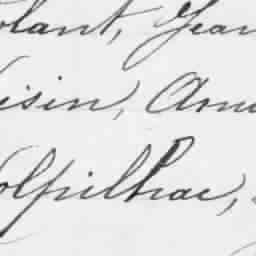 olant, Jean
isin, Am
olpilhac,